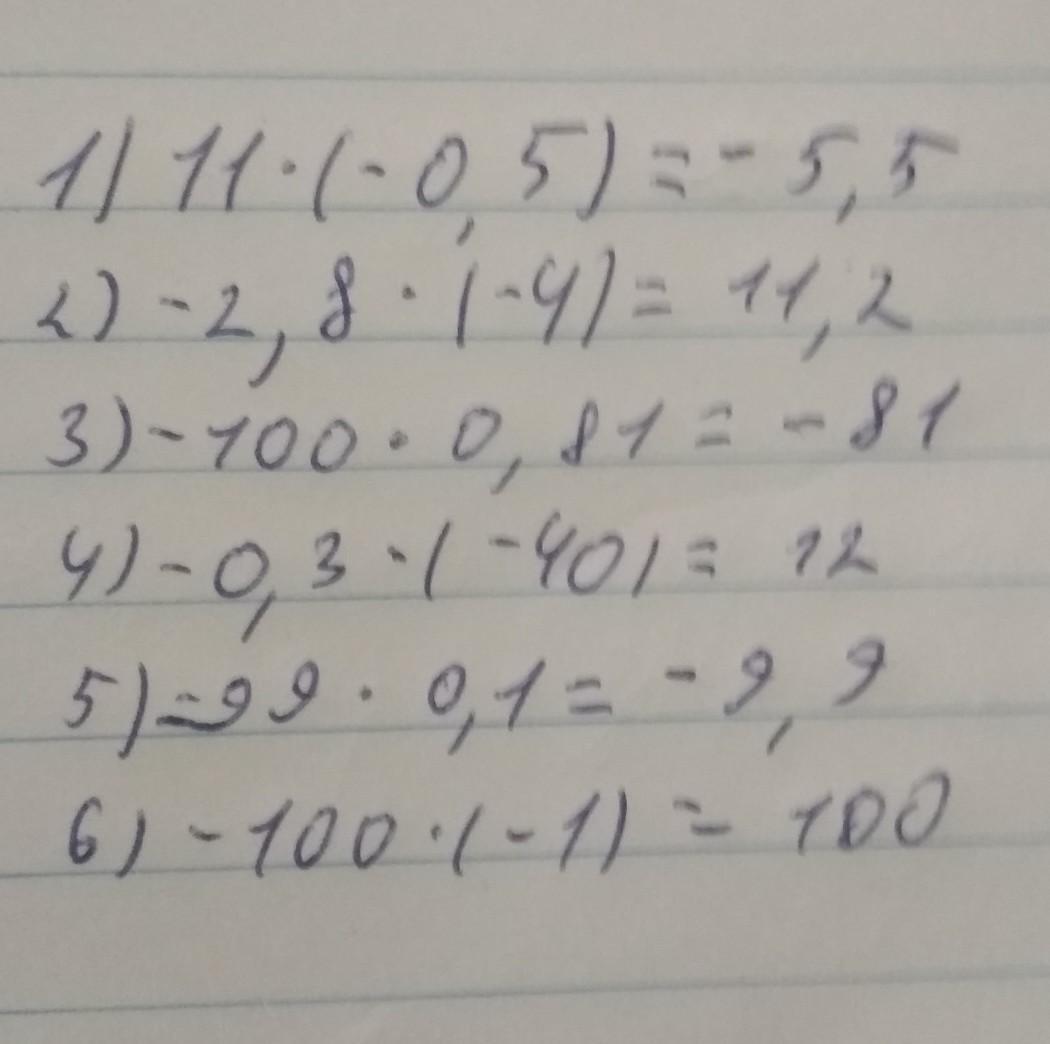 1) 11·(-0,5)=-5,5
2) -2,8·(-4)=11,2
3) -100·0,81=-81
4) -0,3·(-40)=12
5) -99·0,1=-9,9
6) -100·(-1)=100